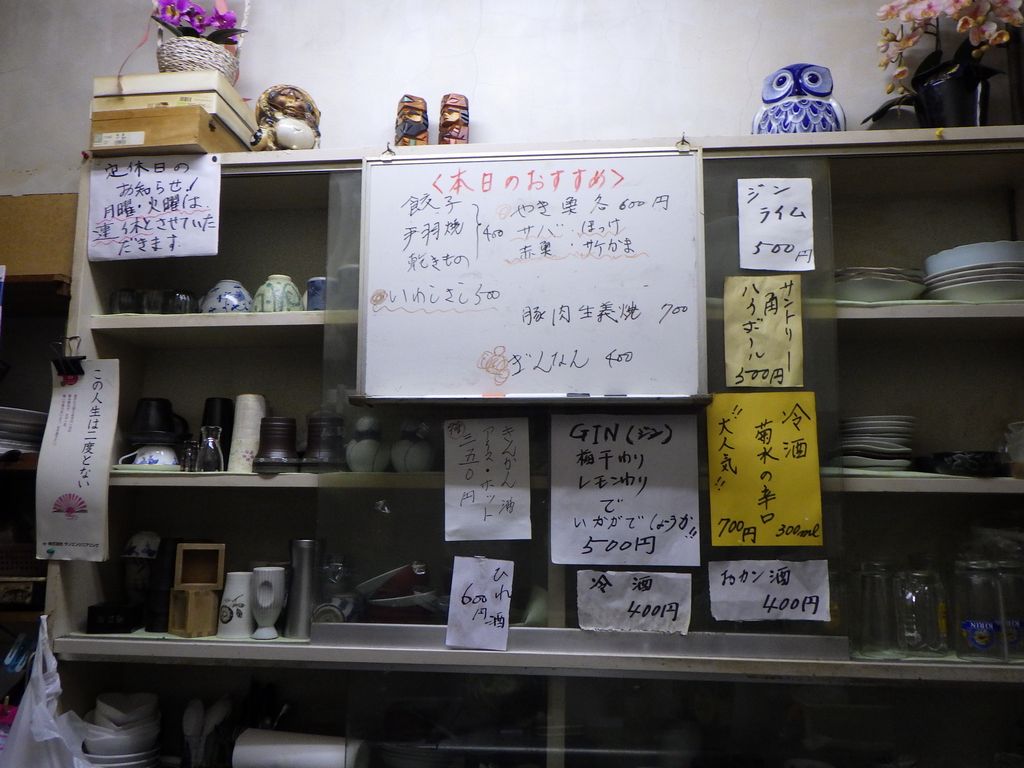 定休日の
お知らせ!
月曜・火曜は
連休とさせていた
だきます
<本日のおすすめ>
餃子
手羽焼
乾きもの
400
やき魚 各600円
サバ・ほっけ
赤魚・サケかま
いわしさし500
豚肉生姜焼 700
ぎんなん 400
ジン
ライム
500円
サントリー
角
ハイボール
500円
この人生は二度とない
きんかん酒
アイス・ホット
三五〇円
GIN(ジン)
梅干わり
レモンわり
で
いかがでしょうか!!
500円
冷酒
菊水の辛口
300ml
!!大人気!!
700円
ひれ酒
600円
冷酒
400円
おカン酒
400円
KIRIN